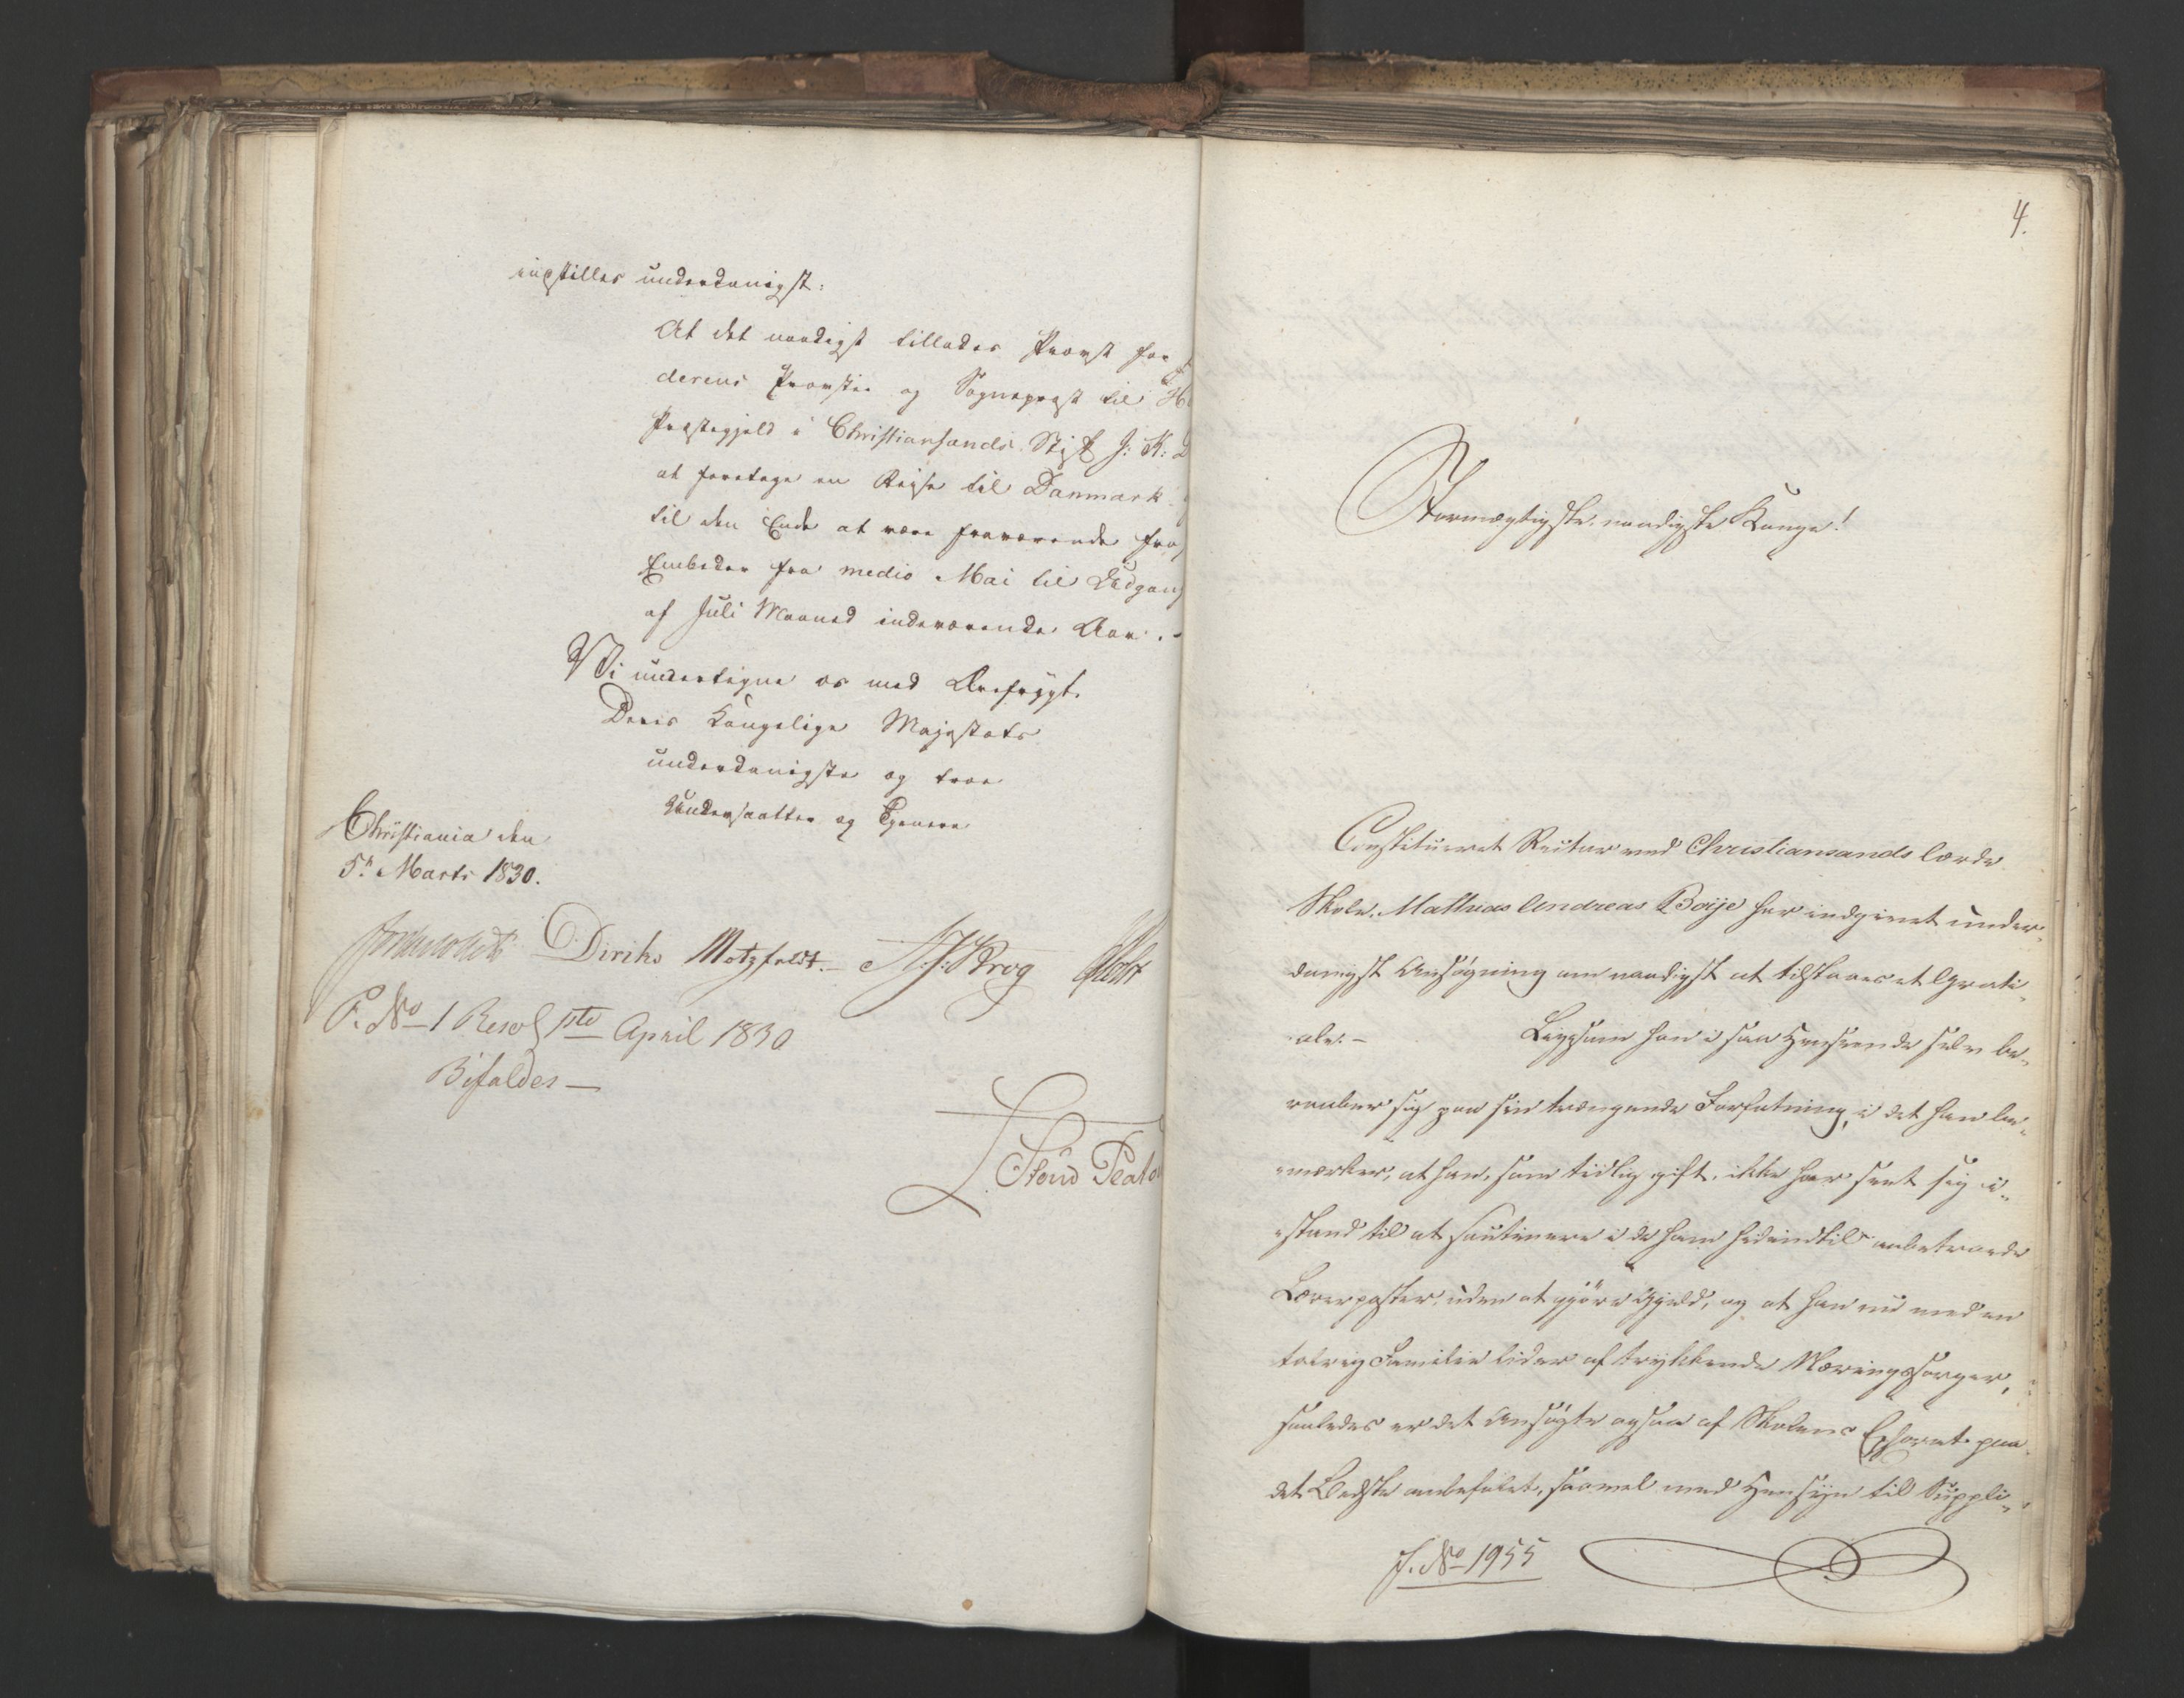 indstilles underdanigst:
At det naadigst tillades Provst for
derens Provstie og Sognepræst til
Præstegjeld i Christiansands Stift J: K:
at foretage en Reise til Danmark
til den Ende at være fraværende fra
Embedet fra medio Mai til Udgang
af Juli Maaned indeværende Aar.-
Vi undertegne os med Ærefrygt.
Deres Kongelige Majestæts
underdanigste og troe
Undersaatter og Tjenere
Christiania den
5te Marts 1830.
Diriks Motzfeldt.- Krog Holst
P. No 1 Resol 1ste April 1830
Bifaldes —
4.
Stormægtigste, naadigste Konge!
Constitueret Rector ved Christiansands lærde
Skole, Mathias Andreas Boije har indgivet under-
danigst Ansøgning om naadigst at tilstaaes et Grati-
ale.- Ligesom han i saa Henseende selv be-
raaber sig paa sin trængende Forfatning, i det han be-
mærker, at han, som tidlig gift, ikke har seet sig i-
stand til at soutinere i de ham hidindtil anbetroede
Lærerposter, uden at gjøre Gjeld, og at han nu med en
talrig Familie lider af trykkende Næringssorger,
saaledes er det Ansøgte ogsaa af Skolens Ephorat paa
det Bedste anbefalet, saavel med Hensyn til Suppli-
J. No 1955